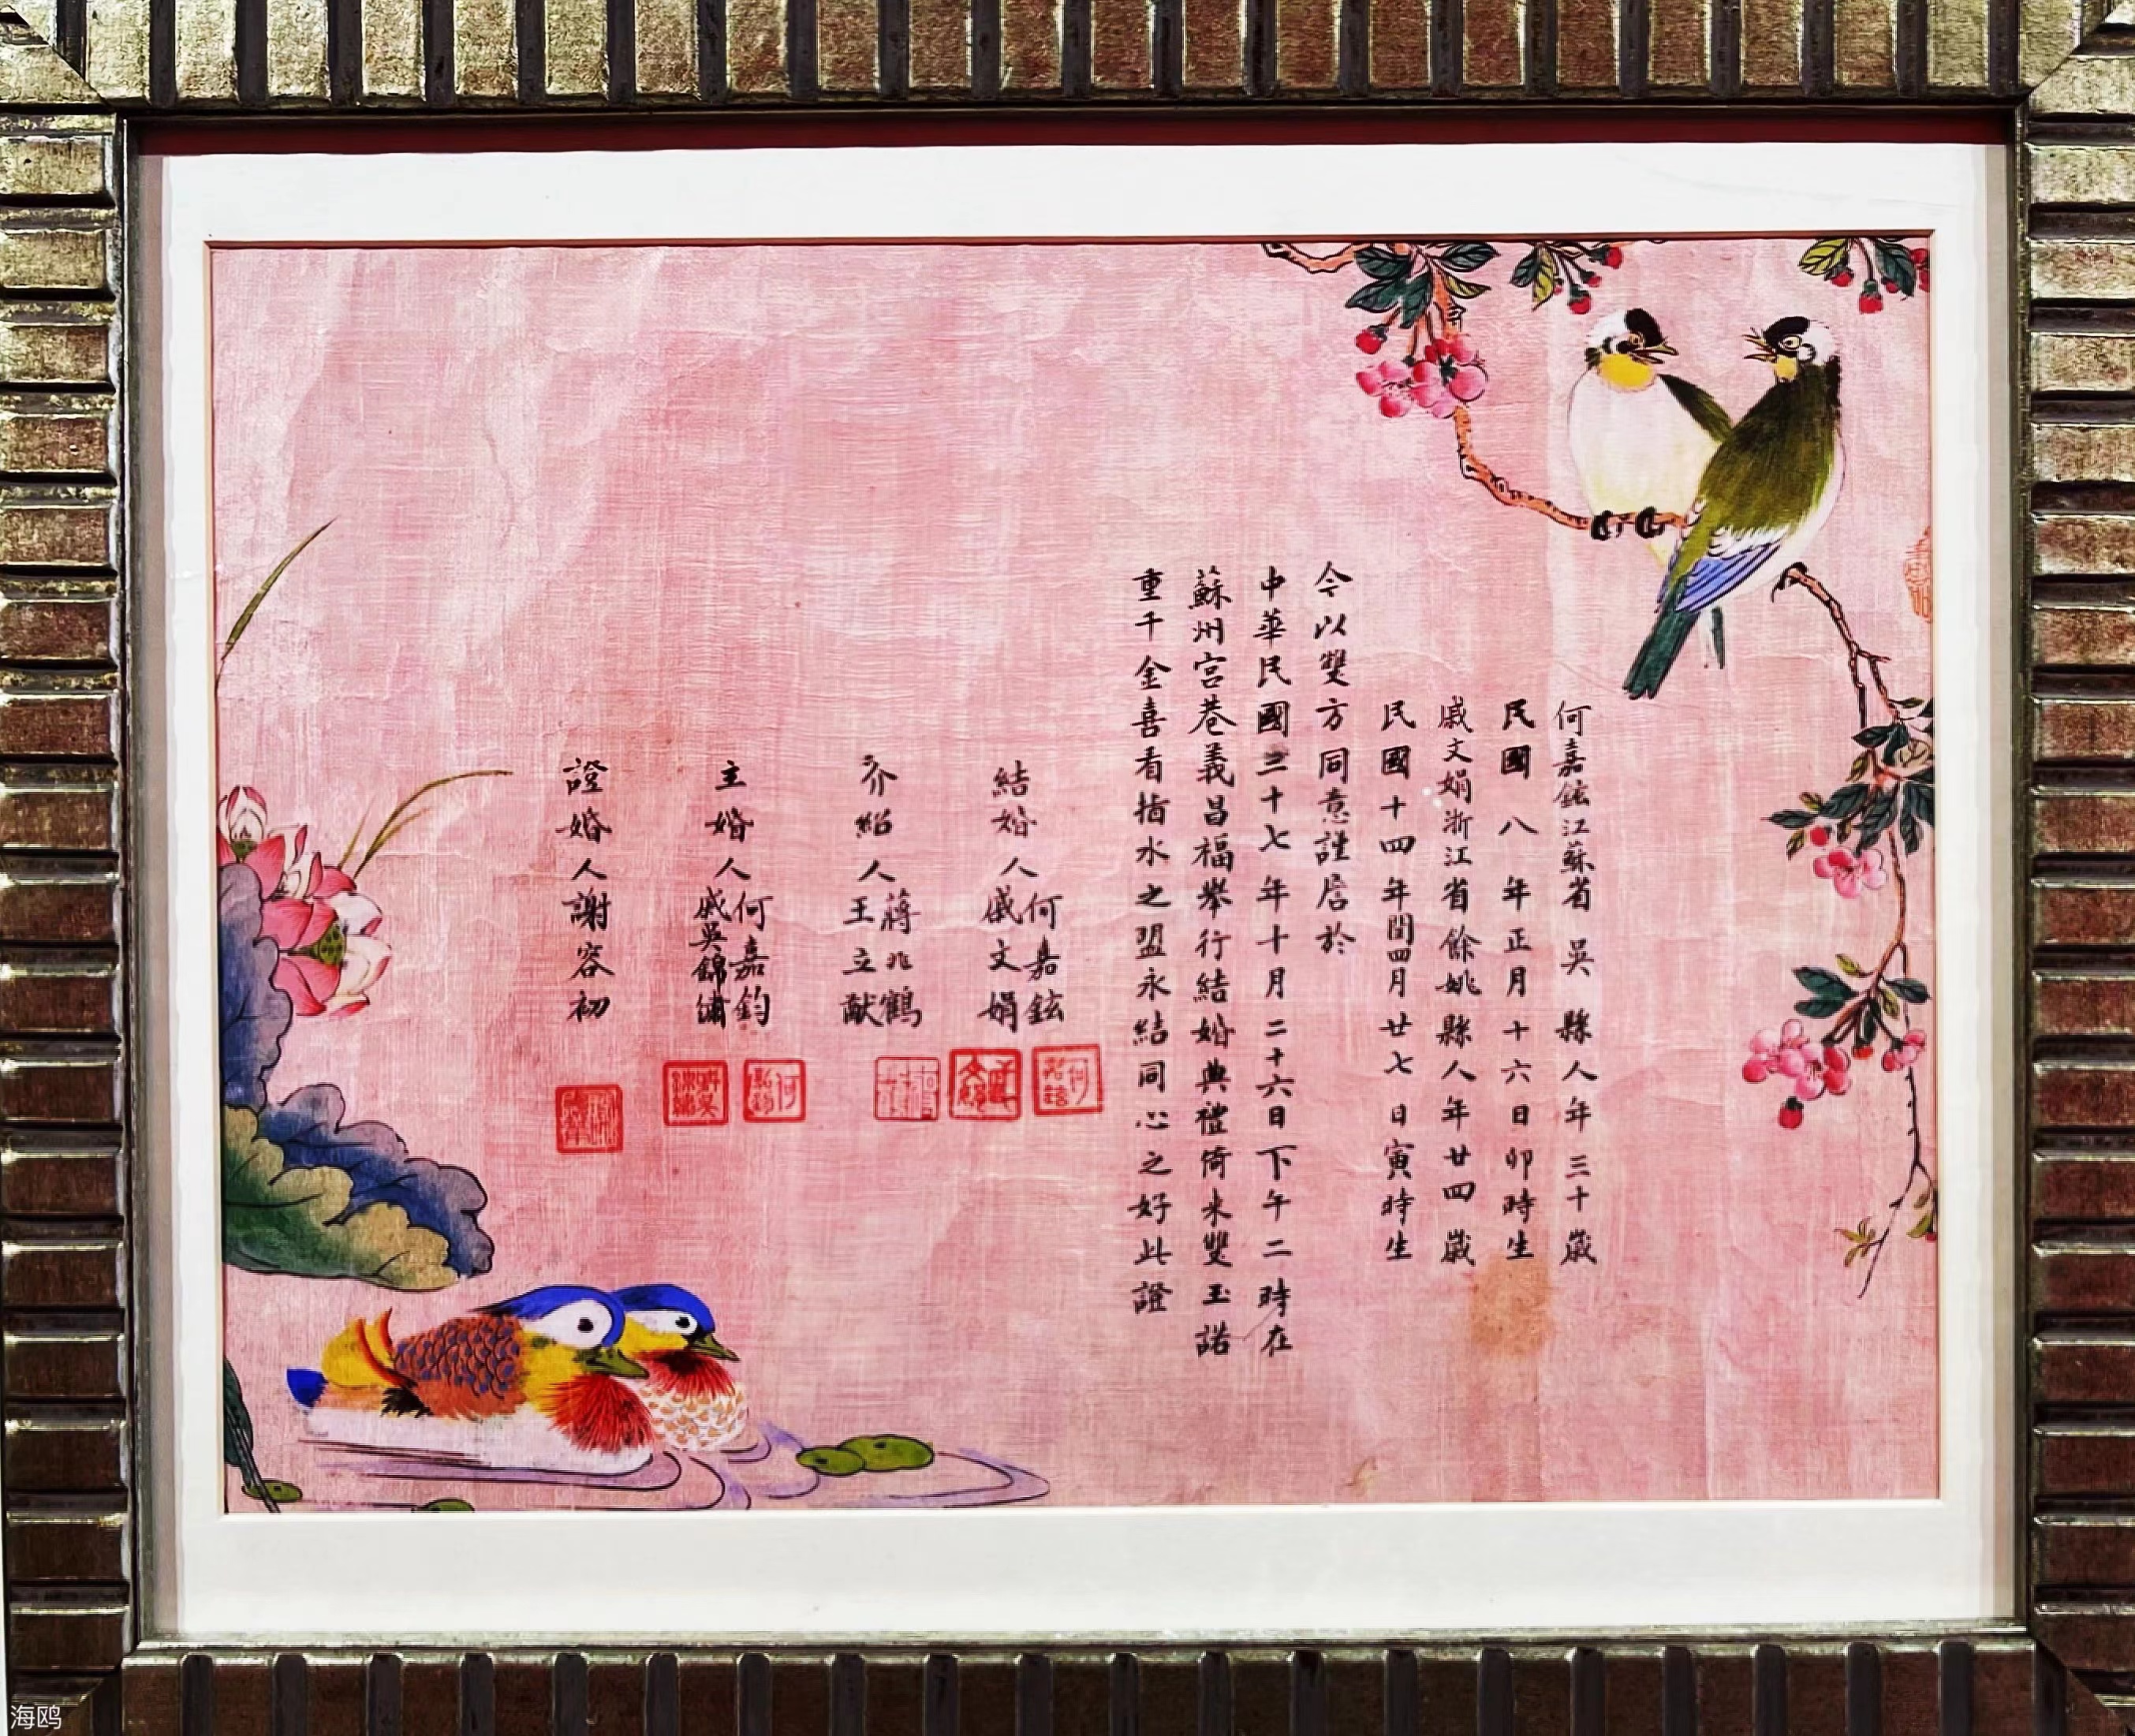 何嘉鉉江蘇省吳縣人年三十歲
民國八年正月十六日卯時生
戚文娟浙江省餘姚縣人年廿四歲
民國十四年閏四月廿七日寅時生
今以雙方同意謹詹於
中華民國三十七年十月二十六日下午二時在
蘇州宮巷義昌福舉行結婚典禮倚來雙玉諾
重千金喜看指水之盟永結同心之好此證
結婚人何嘉鉉
戚文娟
介紹人蔣兆鶴
王立猷
主婚人何嘉鈞
戚吳錦繡
證婚人謝容初
海鸥